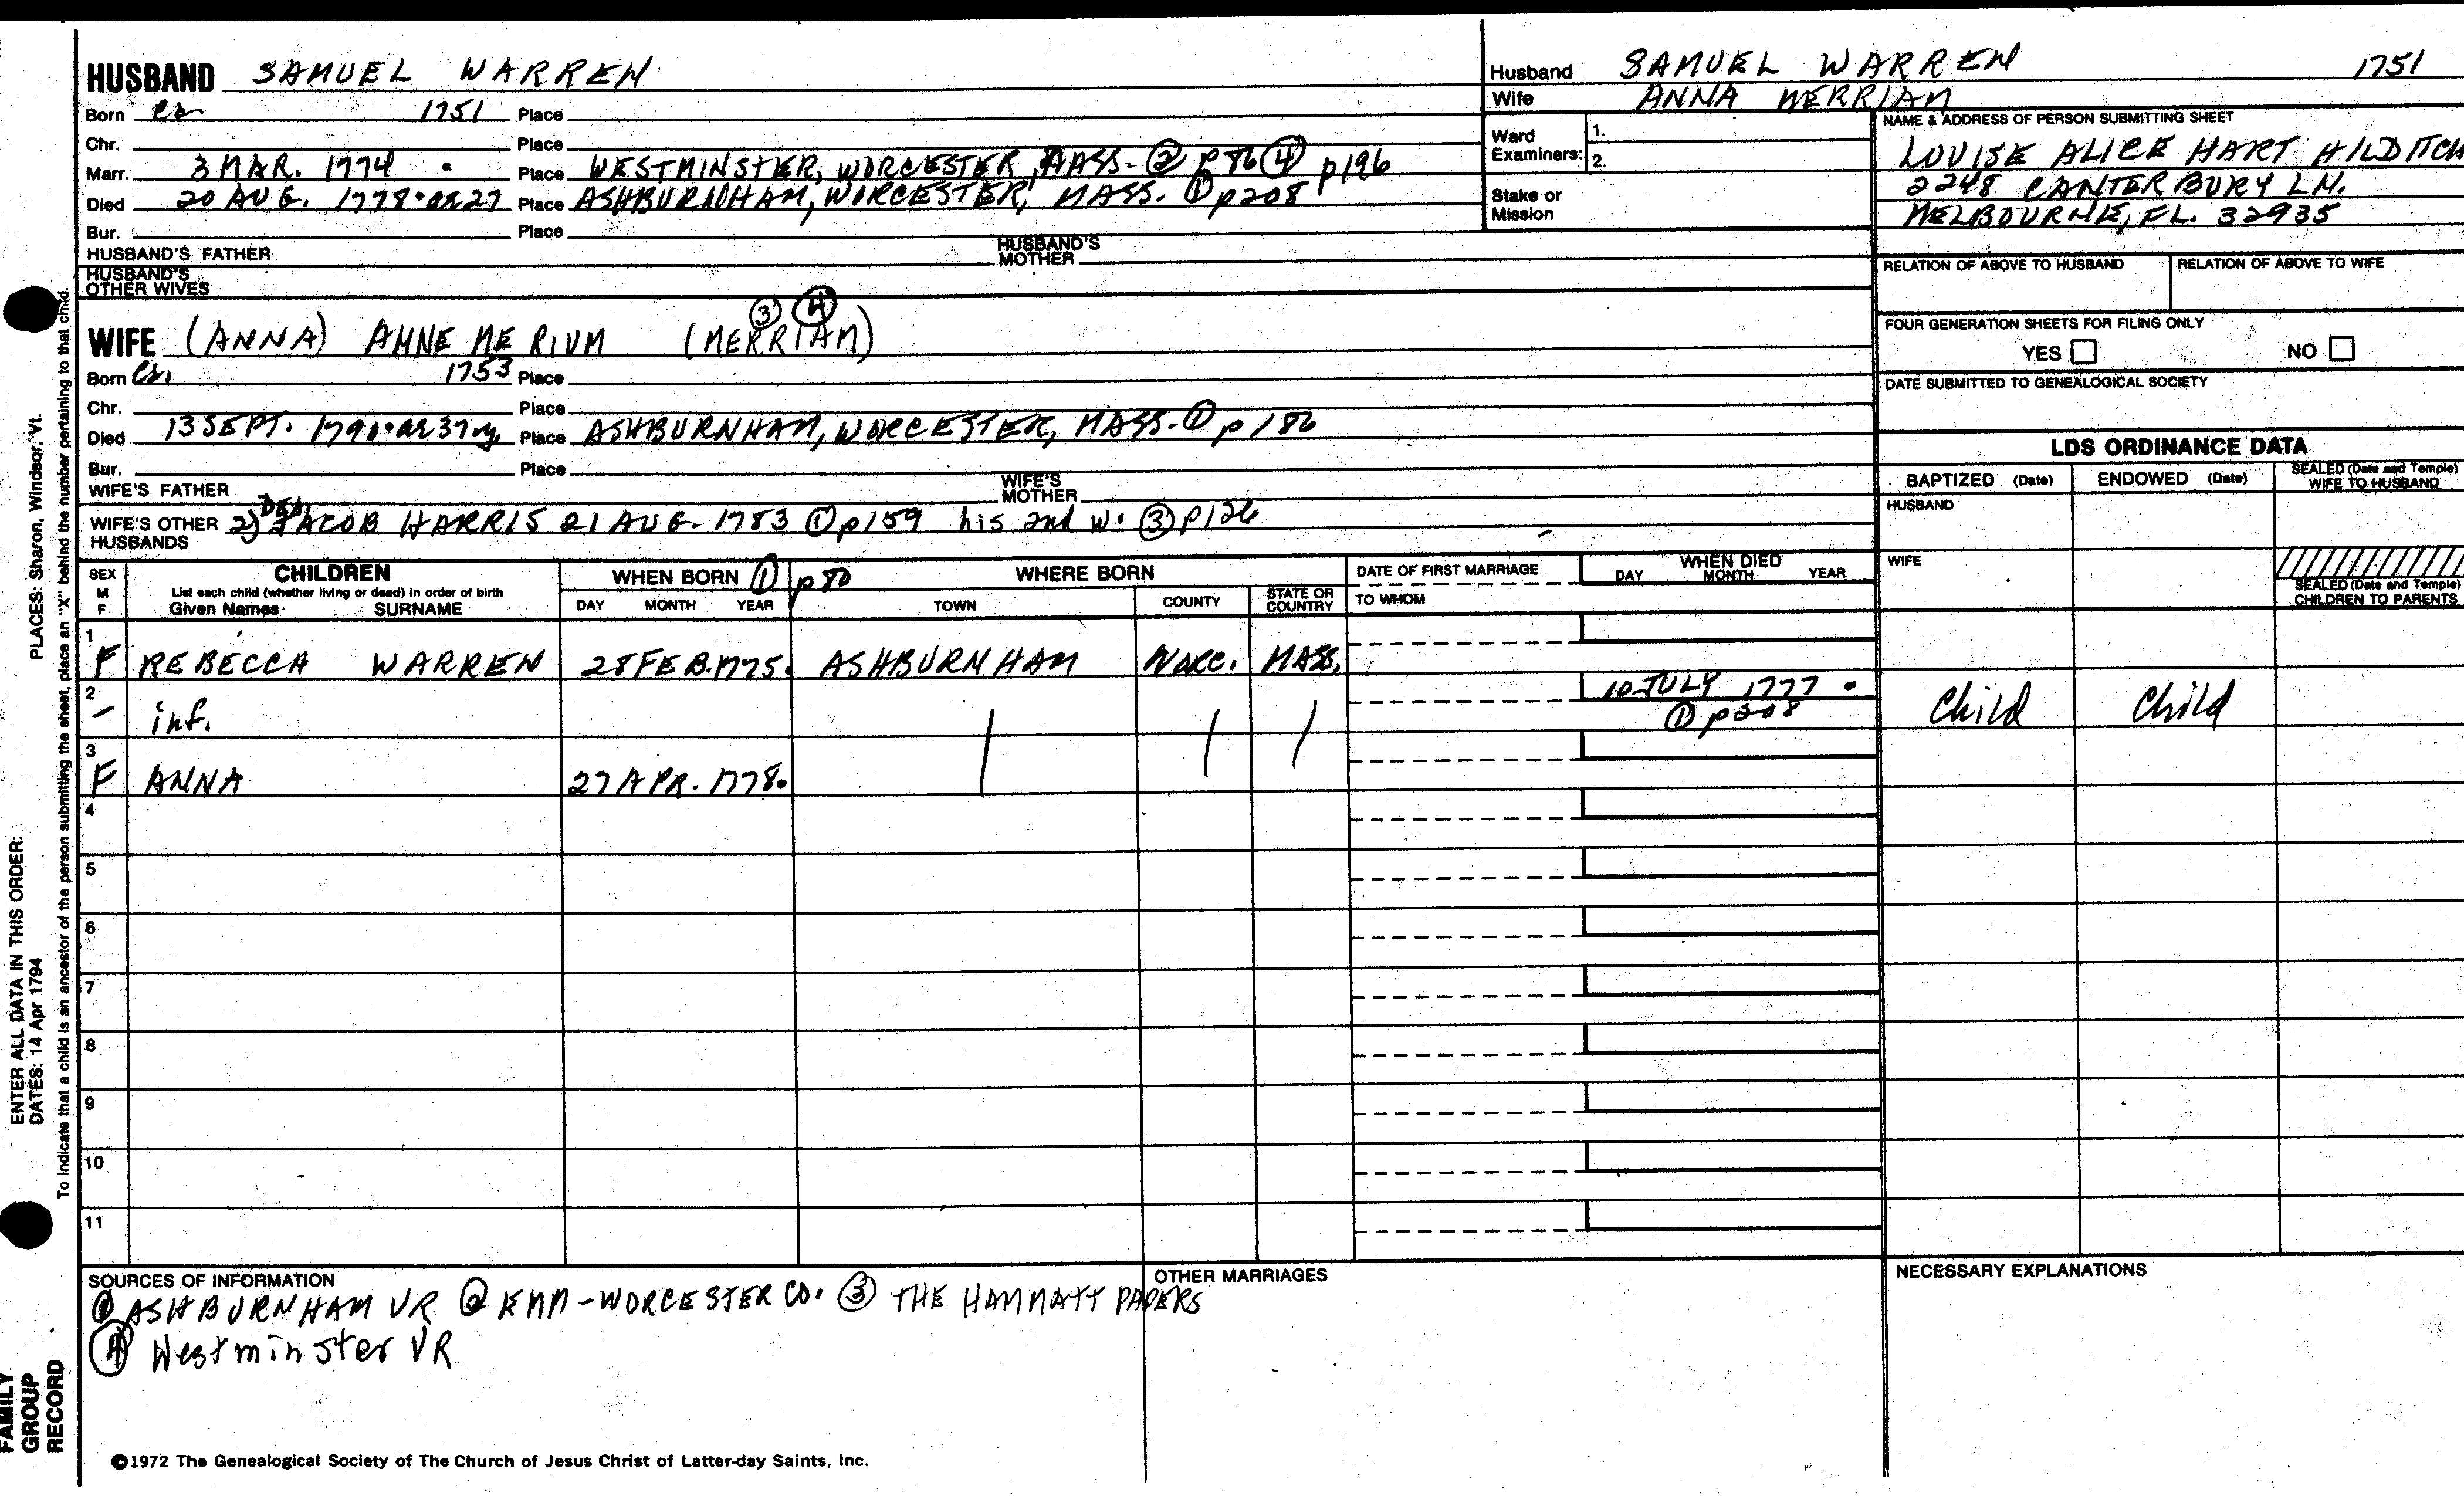 HUSBAND SAMUEL WARREN
Born ca 1751 Place
Chr. Place
Marr. 3 MAR. 1774 . Place WESTMINSTER, WORCESTER, MASS. ② p 86 ④ p196
Died 20 AUG. 1778 . ae 27 Place ASHBURNHAM, WORCESTER, MASS. ① p208
Bur. Place
HUSBAND'S FATHER HUSBAND'S MOTHER
HUSBAND'S OTHER WIVES
③ ④
WIFE (ANNA) ANNE ME RIUM (MERRIAM)
Born ca. 1753 Place
Chr. Place
Died 13 SEPT. 1790 . ae 37 y. Place ASHBURNHAM, WORCESTER, MASS. ① p 186
Bur. Place
WIFE'S FATHER WIFE'S MOTHER
WIFE'S OTHER HUSBANDS 2) DEA. JACOB HARRIS 21 AUG. 1783 ① p159 his 2nd w. ③ p126
Husband SAMUEL WARREN 1751
Wife ANNA MERRIAM
Ward Examiners: 1.
2.
Stake or Mission
NAME & ADDRESS OF PERSON SUBMITTING SHEET
LOUISE ALICE HART HILDITCH
2248 CANTERBURY LN.
MELBOURNE, FL. 32935
RELATION OF ABOVE TO HUSBAND RELATION OF ABOVE TO WIFE
FOUR GENERATION SHEETS FOR FILING ONLY
YES NO
DATE SUBMITTED TO GENEALOGICAL SOCIETY
LDS ORDINANCE DATA
BAPTIZED (Date) ENDOWED (Date) SEALED (Date and Temple) WIFE TO HUSBAND
HUSBAND
WIFE
SEALED (Date and Temple) CHILDREN TO PARENTS
SEX M F CHILDREN
List each child (whether living or dead) in order of birth
Given Names SURNAME
WHEN BORN ① p 80
DAY MONTH YEAR
WHERE BORN
TOWN COUNTY STATE OR COUNTRY
DATE OF FIRST MARRIAGE
TO WHOM
WHEN DIED
DAY MONTH YEAR
1 F REBECCA WARREN 28 FEB. 1775. ASHBURNHAM WORC. MASS.
2 - inf. 10 JULY 1777 . ① p208 Child Child
3 F ANNA 27 APR. 1778.
4
5
6
7
8
9
10
11
SOURCES OF INFORMATION
① ASHBURNHAM VR ② EMM-WORCESTER CO. ③ THE HAMMATT PAPERS
④ Westminster VR
OTHER MARRIAGES
NECESSARY EXPLANATIONS
©1972 The Genealogical Society of The Church of Jesus Christ of Latter-day Saints, Inc.
To indicate that a child is an ancestor of the person submitting the sheet, place an "X" behind the number pertaining to that child.
ENTER ALL DATA IN THIS ORDER:
DATES: 14 Apr 1794
PLACES: Sharon, Windsor, Vt.
FAMILY
GROUP
RECORD